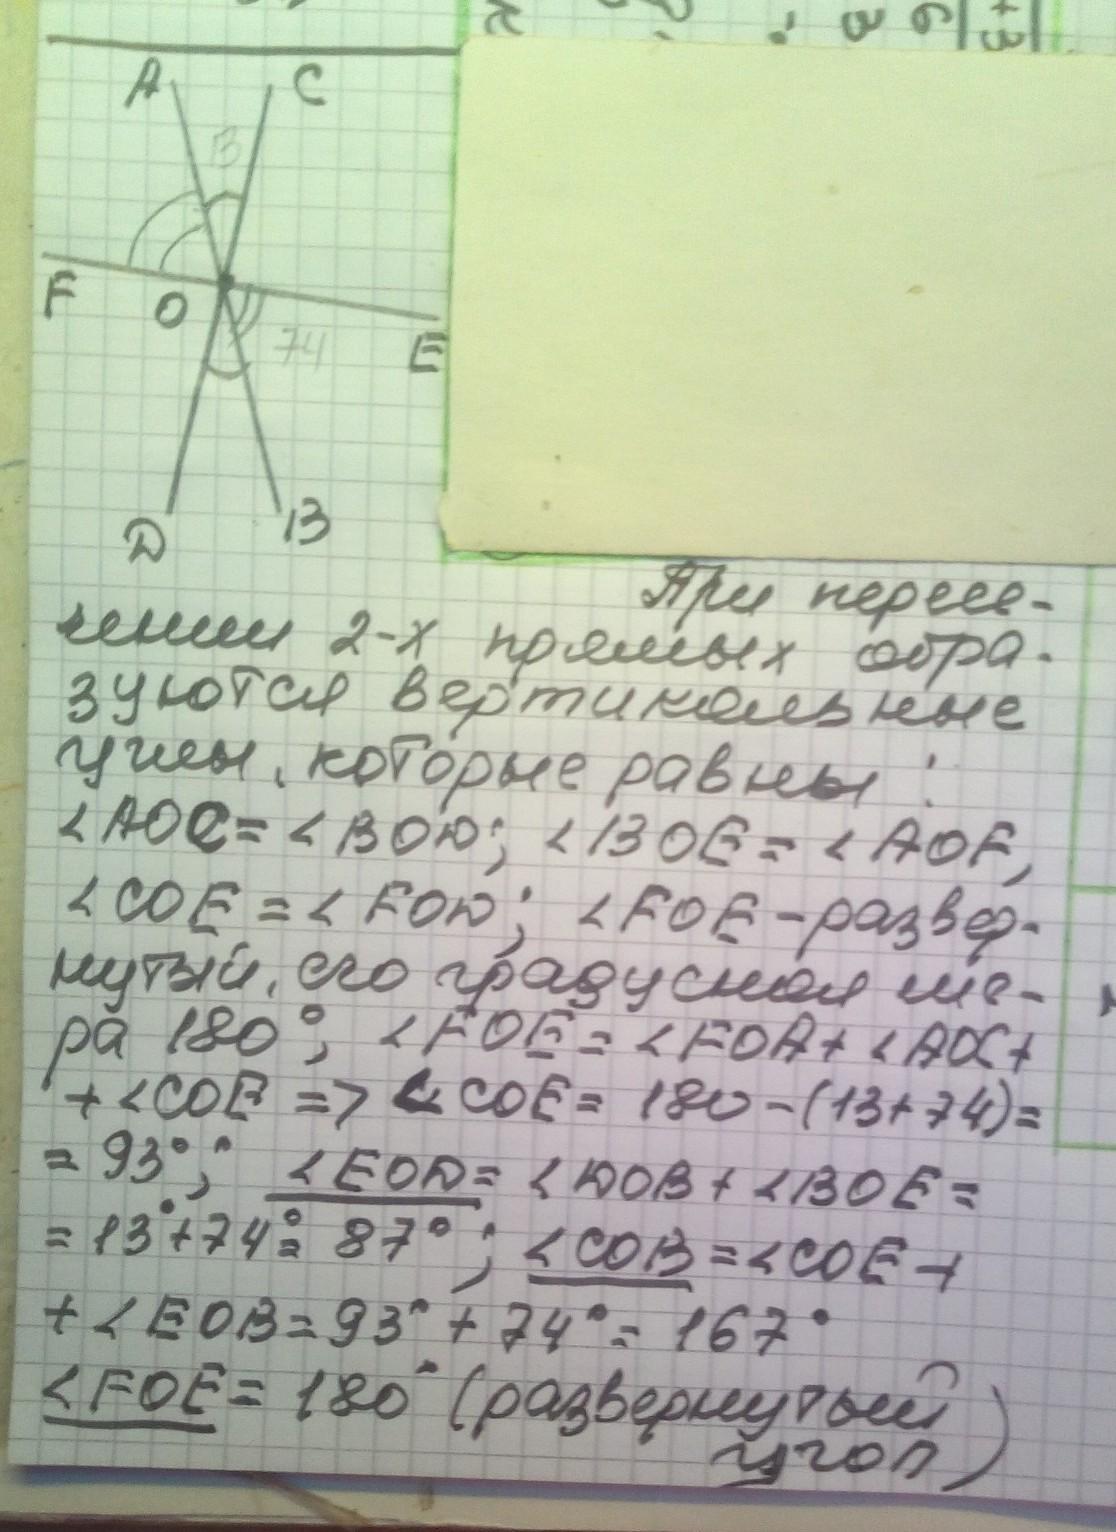 +3
6
3
A
C
13
F
O
74
E
D
B
При пересе-
чении 2-х прямых обра-
зуются вертикальные
углы, которые равны:
∠AOC = ∠BOD; ∠BOE = ∠AOF,
∠COE = ∠FOD; ∠FOE - развер-
нутый, его градусная ме-
ра 180°; ∠FOE = ∠FOA + ∠AOC +
+ ∠COE => ∠COE = 180 - (13 + 74) =
= 93°; ∠EOD = ∠DOB + ∠BOE =
= 13° + 74° = 87°; ∠COB = ∠COE +
+ ∠EOB = 93° + 74° = 167°
∠FOE = 180° (развернутый
угол)